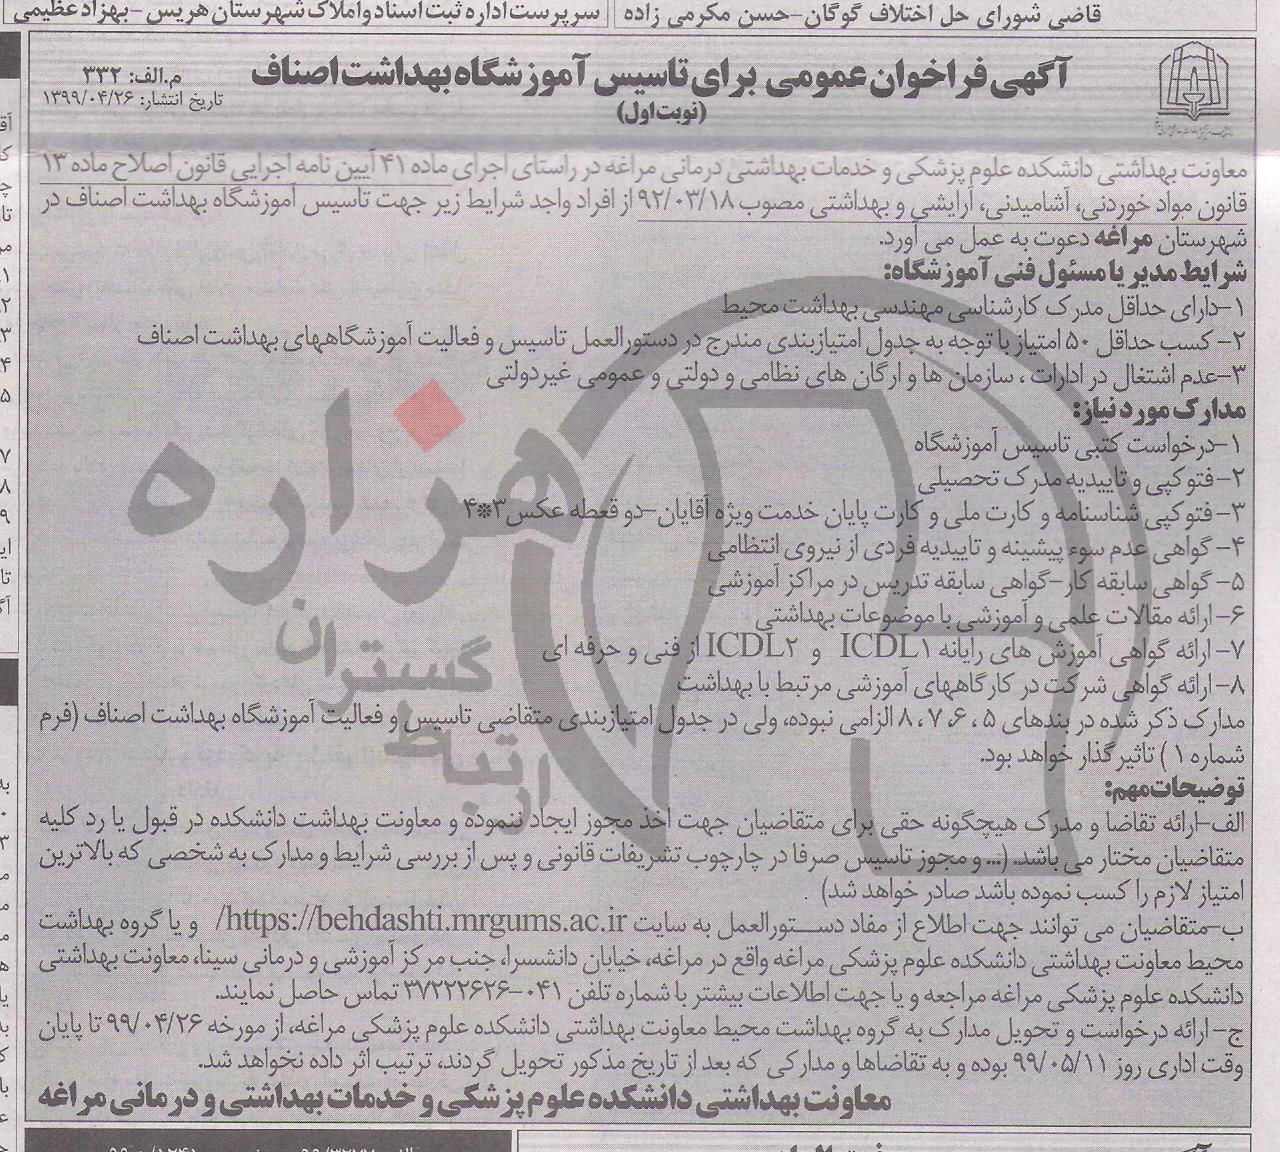 قاضی شورای حل اختلاف گوگان-حسن مکرمی زاده
سرپرست اداره ثبت اسناد و املاک شهرستان هریس - بهزاد عظیمی
آگهی فراخوان عمومی برای تاسیس آموزشگاه بهداشت اصناف
(نوبت اول)
م.الف: ۳۳۲
تاریخ انتشار: ۱۳۹۹/۰۴/۲۶
معاونت بهداشتی دانشکده علوم پزشکی و خدمات بهداشتی درمانی مراغه در راستای اجرای ماده ۴۱ آیین نامه اجرایی قانون اصلاح ماده ۱۳
قانون مواد خوردنی، آشامیدنی، آرایشی و بهداشتی مصوب ۹۲/۰۳/۱۸ از افراد واجد شرایط زیر جهت تاسیس آموزشگاه بهداشت اصناف در
شهرستان مراغه دعوت به عمل می آورد.
شرایط مدیر یا مسئول فنی آموزشگاه:
۱-دارای حداقل مدرک کارشناسی مهندسی بهداشت محیط
۲- کسب حداقل ۵۰ امتیاز با توجه به جدول امتیازبندی مندرج در دستورالعمل تاسیس و فعالیت آموزشگاههای بهداشت اصناف
۳-عدم اشتغال در ادارات ، سازمان ها و ارگان های نظامی و دولتی و عمومی غیردولتی
مدارک مورد نیاز:
۱-درخواست کتبی تاسیس آموزشگاه
۲-فتوکپی و تاییدیه مدرک تحصیلی
۳- فتوکپی شناسنامه و کارت ملی و کارت پایان خدمت ویژه آقایان-دو قطعه عکس ۳*۴
۴- گواهی عدم سوء پیشینه و تاییدیه فردی از نیروی انتظامی
۵- گواهی سابقه کار-گواهی سابقه تدریس در مراکز آموزشی
۶- ارائه مقالات علمی و آموزشی با موضوعات بهداشتی
۷- ارائه گواهی آموزش های رایانه ICDL۱ و ICDL۲ از فنی و حرفه ای
۸- ارائه گواهی شرکت در کارگاههای آموزشی مرتبط با بهداشت
مدارک ذکر شده در بندهای ۵ ، ۶، ۷ ، ۸ الزامی نبوده، ولی در جدول امتیازبندی متقاضی تاسیس و فعالیت آموزشگاه بهداشت اصناف (فرم
شماره ۱ ) تاثیر گذار خواهد بود.
توضیحات مهم:
الف-ارائه تقاضا و مدرک هیچگونه حقی برای متقاضیان جهت اخذ مجوز ایجاد ننموده و معاونت بهداشت دانشکده در قبول یا رد کلیه
متقاضیان مختار می باشد. (... و مجوز تاسیس صرفا در چارچوب تشریفات قانونی و پس از بررسی شرایط و مدارک به شخصی که بالاترین
امتیاز لازم را کسب نموده باشد صادر خواهد شد) .
ب-متقاضیان می توانند جهت اطلاع از مفاد دستورالعمل به سایت https://behdashti.mrgums.ac.ir/ و یا گروه بهداشت
محیط معاونت بهداشتی دانشکده علوم پزشکی مراغه واقع در مراغه، خیابان دانشسرا، جنب مرکز آموزشی و درمانی سینا، معاونت بهداشتی
دانشکده علوم پزشکی مراغه مراجعه و یا جهت اطلاعات بیشتر با شماره تلفن ۰۴۱-۳۷۲۲۲۶۲۶ تماس حاصل نمایند.
ج- ارائه درخواست و تحویل مدارک به گروه بهداشت محیط معاونت بهداشتی دانشکده علوم پزشکی مراغه، از مورخه ۹۹/۰۴/۲۶ تا پایان
وقت اداری روز ۹۹/۰۵/۱۱ بوده و به تقاضاها و مدارکی که بعد از تاریخ مذکور تحویل گردند، ترتیب اثر داده نخواهد شد.
معاونت بهداشتی دانشکده علوم پزشکی و خدمات بهداشتی و درمانی مراغه
هزاره
گستران
ارتباط